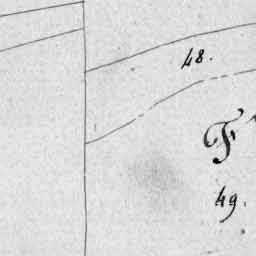 48.
F
49.